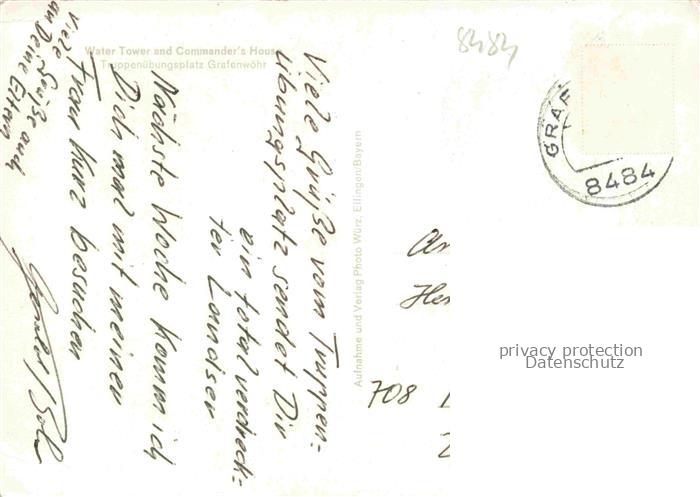 Water Tower and Commander's House
Truppenübungsplatz Grafenwöhr
8484
Viele Grüße vom Truppen=
übungsplatz sendet Dir
ein total verdreck=
ter Landser
Nächste Woche komm ich
Dich mal mit meiner
Frau kurz besuchen
Viele Grüße auch
an Deine Eltern
Aufnahme und Verlag Photo Würz, Ellingen/Bayern
GRAF
8484
An
Her
708
privacy protection
Datenschutz